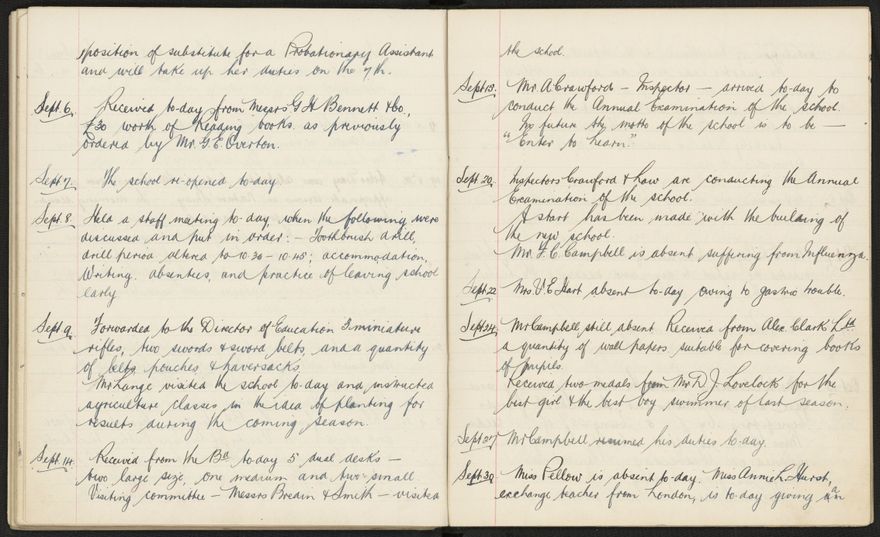 position of substitute for a Probationary Assistant
and will take up her duties on the 7th.
Sept. 6. Received to-day from Messrs G H Bennett & Co,
£30 worth of Reading books as previously
ordered by Mr. G. E. Overton.
Sept. 7. The school re-opened to-day
Sept. 8. Held a staff meeting to-day, when the following were
discussed and put in order:- Toothbrush drill,
drill period altered to 10.30 - 10.45; accommodation,
Writing, absentees, and practice of leaving school
early
Sept. 9. Forwarded to the Director of Education 3 miniature
rifles, two swords & sword belts, and a quantity
of belts pouches & haversacks.
Mr Lange visited the school to-day and instructed
agriculture classes in the idea of planting for
results during the coming season.
Sept. 14. Received from the Bd to-day 5 dual desks -
two large size, one medium and two small.
Visiting committee - Messrs Bredin & Smith - visited
the school.
Sept. 19. Mr. A Crawford - Inspector - arrived to-day to
conduct the Annual Examination of the school.
In future the motto of the school is to be -
"Enter to learn."
Sept. 20. Inspectors Crawford & Law are conducting the Annual
Examination of the school.
A start has been made with the building of
the new school.
Mr. F. C. Campbell is absent suffering from Influenza.
Sept. 22 Mrs. V. E Hart absent to-day owing to gastric trouble.
Sept. 24. Mr Campbell still absent Received from Alex. Clark Ltd
a quantity of wall papers suitable for covering books
of pupils.
Received two medals from Mr D. J. Lovelock for the
best girl & the best boy swimmer of last season.
Sept. 27 Mr Campbell resumed his duties to-day.
Sept. 30 Miss Pellow is absent to-day. Miss Annie L. Hurst,
exchange teacher from London, is to-day giving an